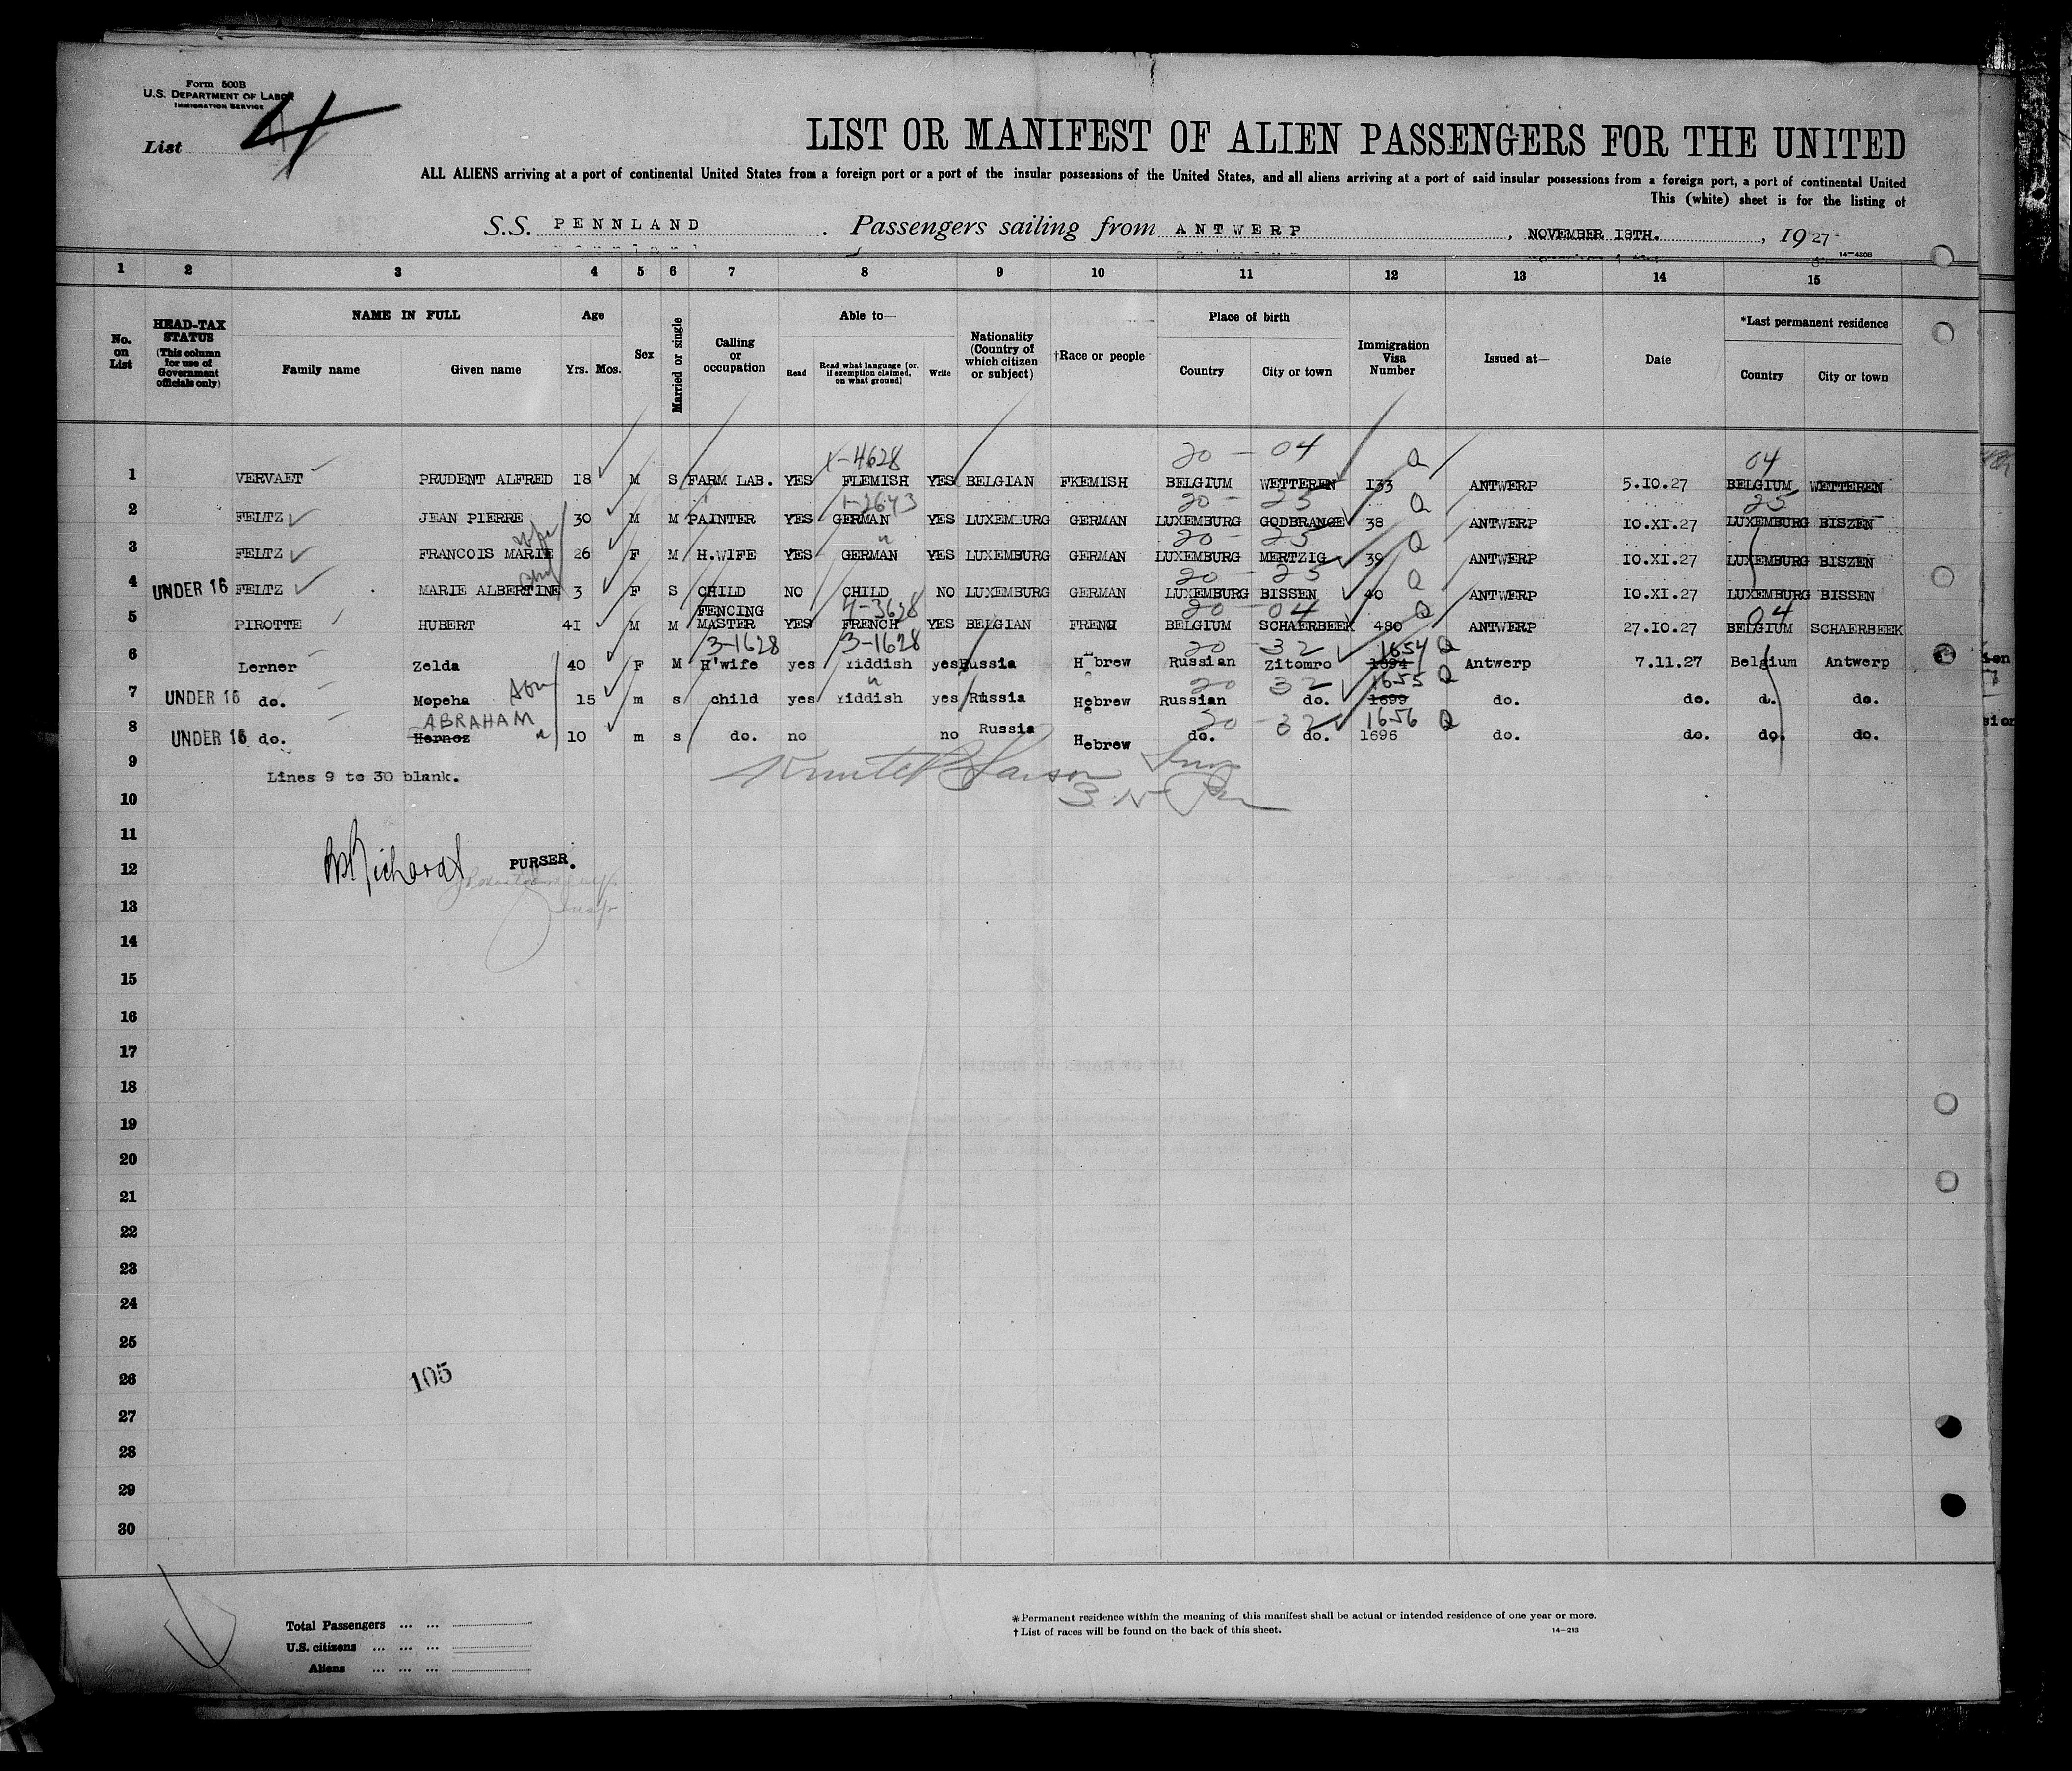 Form 500B
U.S. DEPARTMENT OF LABOR
IMMIGRATION SERVICE
List 4
LIST OR MANIFEST OF ALIEN PASSENGERS FOR THE UNITED
ALL ALIENS arriving at a port of continental United States from a foreign port or a port of the insular possessions of the United States, and all aliens arriving at a port of said insular possessions from a foreign port, a port of continental United
This (white) sheet is for the listing of
S.S. PENNLAND . Passengers sailing from ANTWERP , NOVEMBER 18TH. , 1927
14-430B
1 2 3 4 5 6 7 8 9 10 11 12 13 14 15
No. on List
HEAD-TAX STATUS (This column for use of Government officials only)
NAME IN FULL
Family name Given name
Age
Yrs. Mos.
Sex
Married or single
Calling or occupation
Able to—
Read
Read what language [or, if exemption claimed, on what ground]
Write
Nationality (Country of which citizen or subject)
†Race or people
Place of birth
Country City or town
Immigration Visa Number
Issued at—
Date
*Last permanent residence
Country City or town
1-4628 20 - 04 Q 04
1 VERVAET PRUDENT ALFRED 18 M S FARM LAB. YES FLEMISH YES BELGIAN FKEMISH BELGIUM WETTEREN 133 ANTWERP 5.10.27 BELGIUM WETTEREN
1-2643 20 - 25 Q 25
2 FELTZ JEAN PIERRE 30 M M PAINTER YES GERMAN YES LUXEMBURG GERMAN LUXEMBURG GODBRANGE 38 ANTWERP 10.XI.27 LUXEMBURG BISZEN
wife " 20 - 25 Q
3 FELTZ FRANCOIS MARIE 26 F M H.WIFE YES GERMAN YES LUXEMBURG GERMAN LUXEMBURG MERTZIG 39 ANTWERP 10.XI.27 LUXEMBURG BISZEN
20 - 25 Q
4 UNDER 16 FELTZ MARIE ALBERTINE 3 F S CHILD NO CHILD NO LUXEMBURG GERMAN LUXEMBURG BISSEN 40 ANTWERP 10.XI.27 LUXEMBURG BISSEN
4-3628 20 - 04 Q 04
5 PIROTTE HUBERT 41 M M FENCING MASTER YES FRENCH YES BELGIAN FRENH BELGIUM SCHAERBEEK 480 ANTWERP 27.10.27 BELGIUM SCHAERBEEK
3-1628 3-1628 20 - 32 1654 Q
6 Lerner Zelda 40 F M H'wife yes Yiddish yes Russia Hebrew Russian Zitomro 1694 Antwerp 7.11.27 Belgium Antwerp
son " 20 32 1655 Q
7 UNDER 16 do. Mopcha 15 m s child yes Yiddish yes Russia Hebrew Russian do. 1699 do. do. d. do.
ABRAHAM " 20 - 32 1656 Q
8 UNDER 16 do. Hernoz 10 m s do. no no Russia Hebrew do. do. 1696 do. do. do. do.
9 Lines 9 to 30 blank.
10
11
12 PURSER.
13
14
15
16
17
18
19
20
21
22
23
24
25
26 105
27
28
29
30
Total Passengers ... ...
U.S. citizens ... ... ...
Aliens ... ... ...
* Permanent residence within the meaning of this manifest shall be actual or intended residence of one year or more.
† List of races will be found on the back of this sheet.
14-213